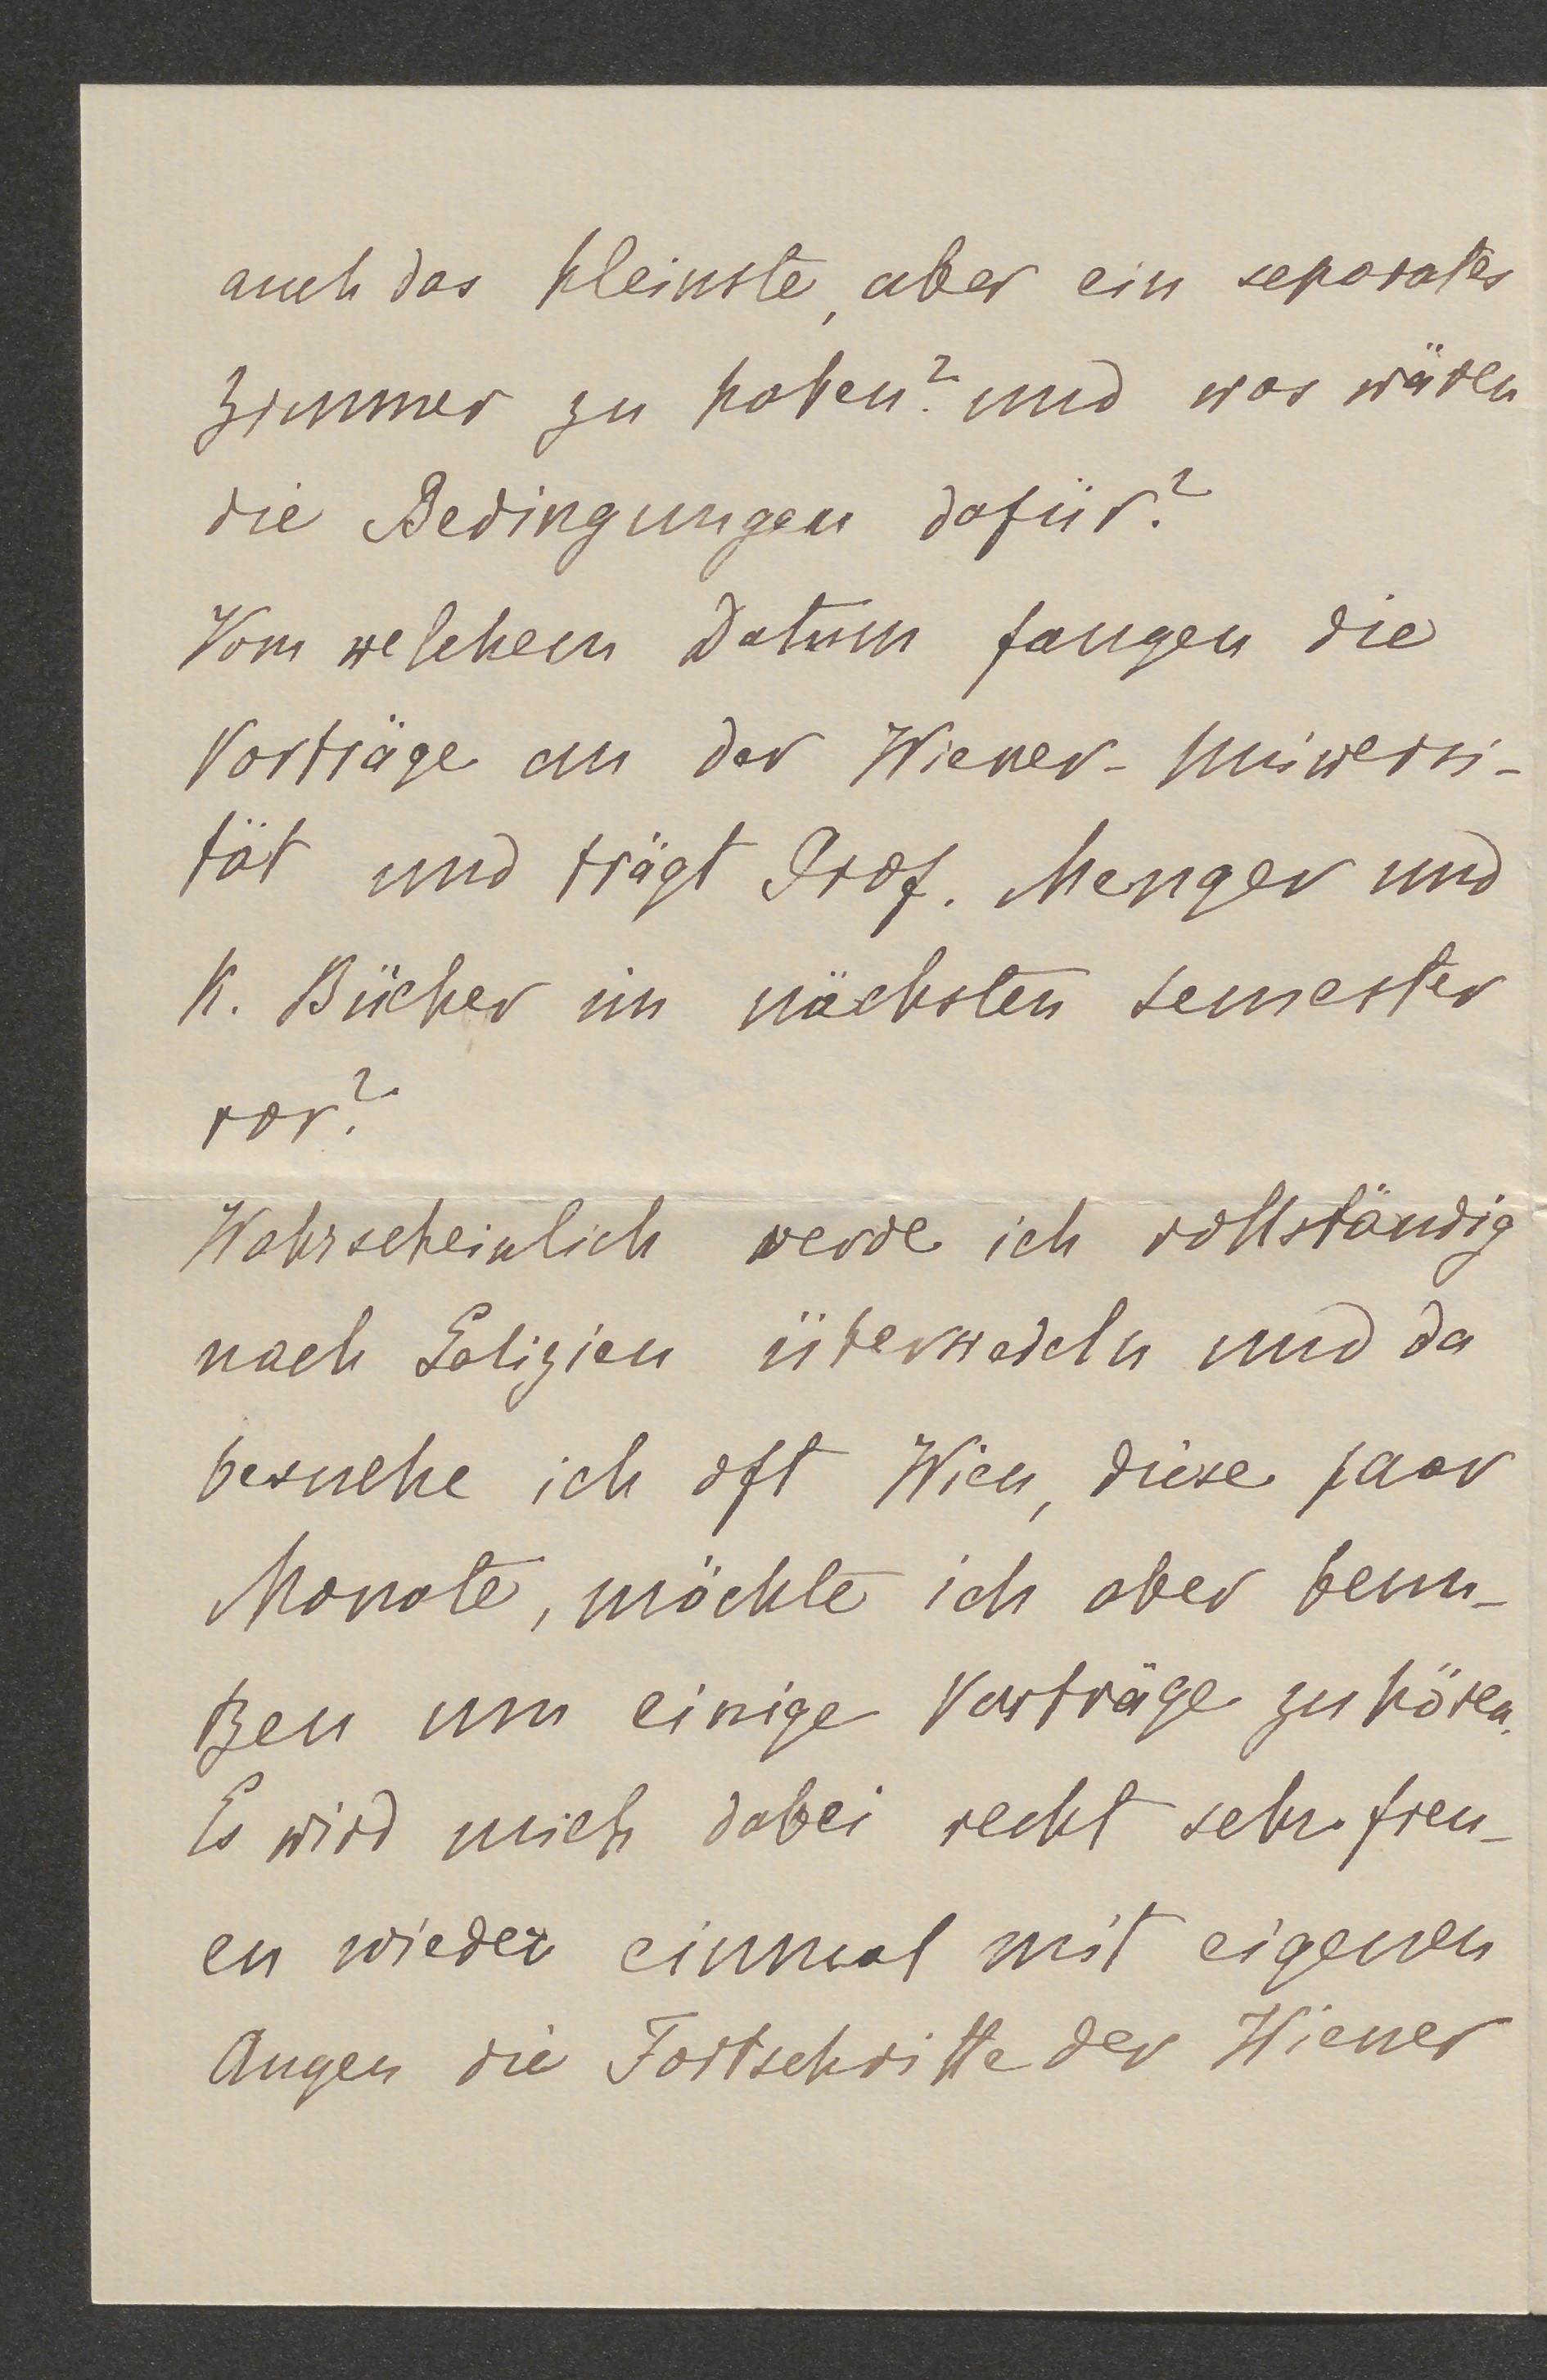 auch das kleinste, aber ein separates
Zimmer zu haben? und was wären
die Bedingungen dafür?
Vom welchem Datum fangen die
Vorträge an der Wiener-Universi-
tät und trägt Prof. Menger und
K. Bücher im nächsten Semester
vor?
Wahrscheinlich werde ich vollständig
nach Galizien übersiedeln und da
besuche ich oft Wien, diese paar
Monate, möchte ich aber benu-
tzen um einige Vorträge zu hören.
Es wird mich dabei recht sehr freu-
en wieder einmal mit eigenen
Augen die Fortschritte der Wiener